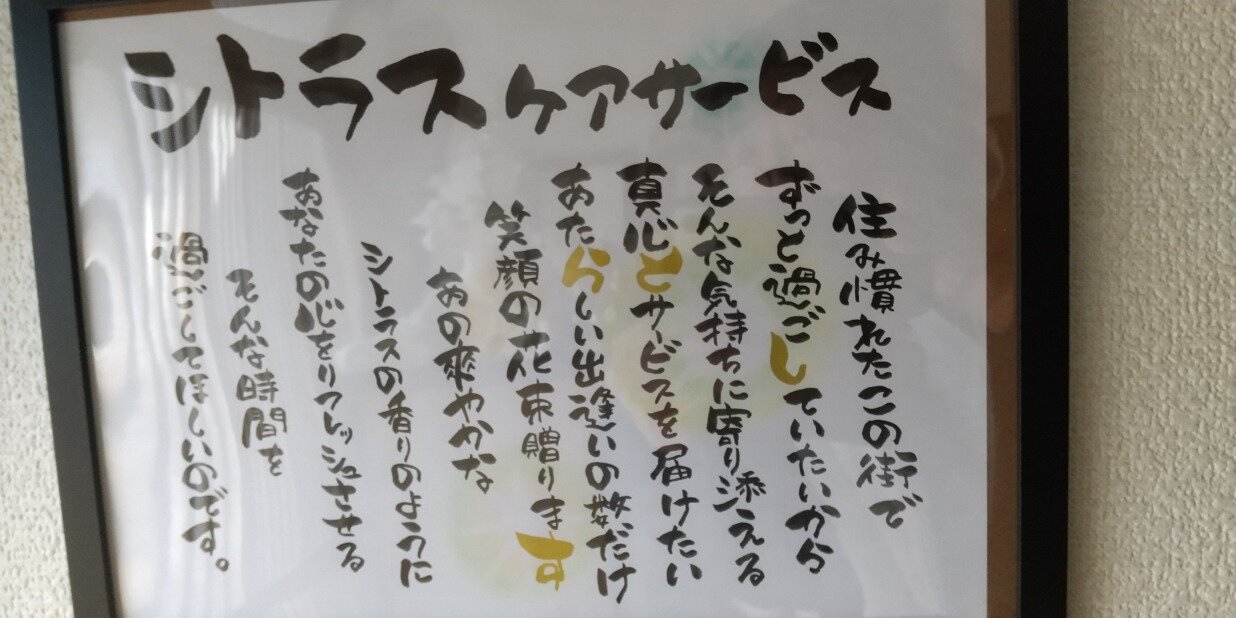 シトラスケアサービス
住み慣れたこの街で
ずっと過ごしていたいから
そんな気持ちに寄り添える
真心とサービスを届けたい
あたらしい出逢いの数だけ
笑顔の花束贈ります
あの爽やかな
シトラスの香りのように
あなたの心をリフレッシュさせる
そんな時間を
過ごしてほしいのです。